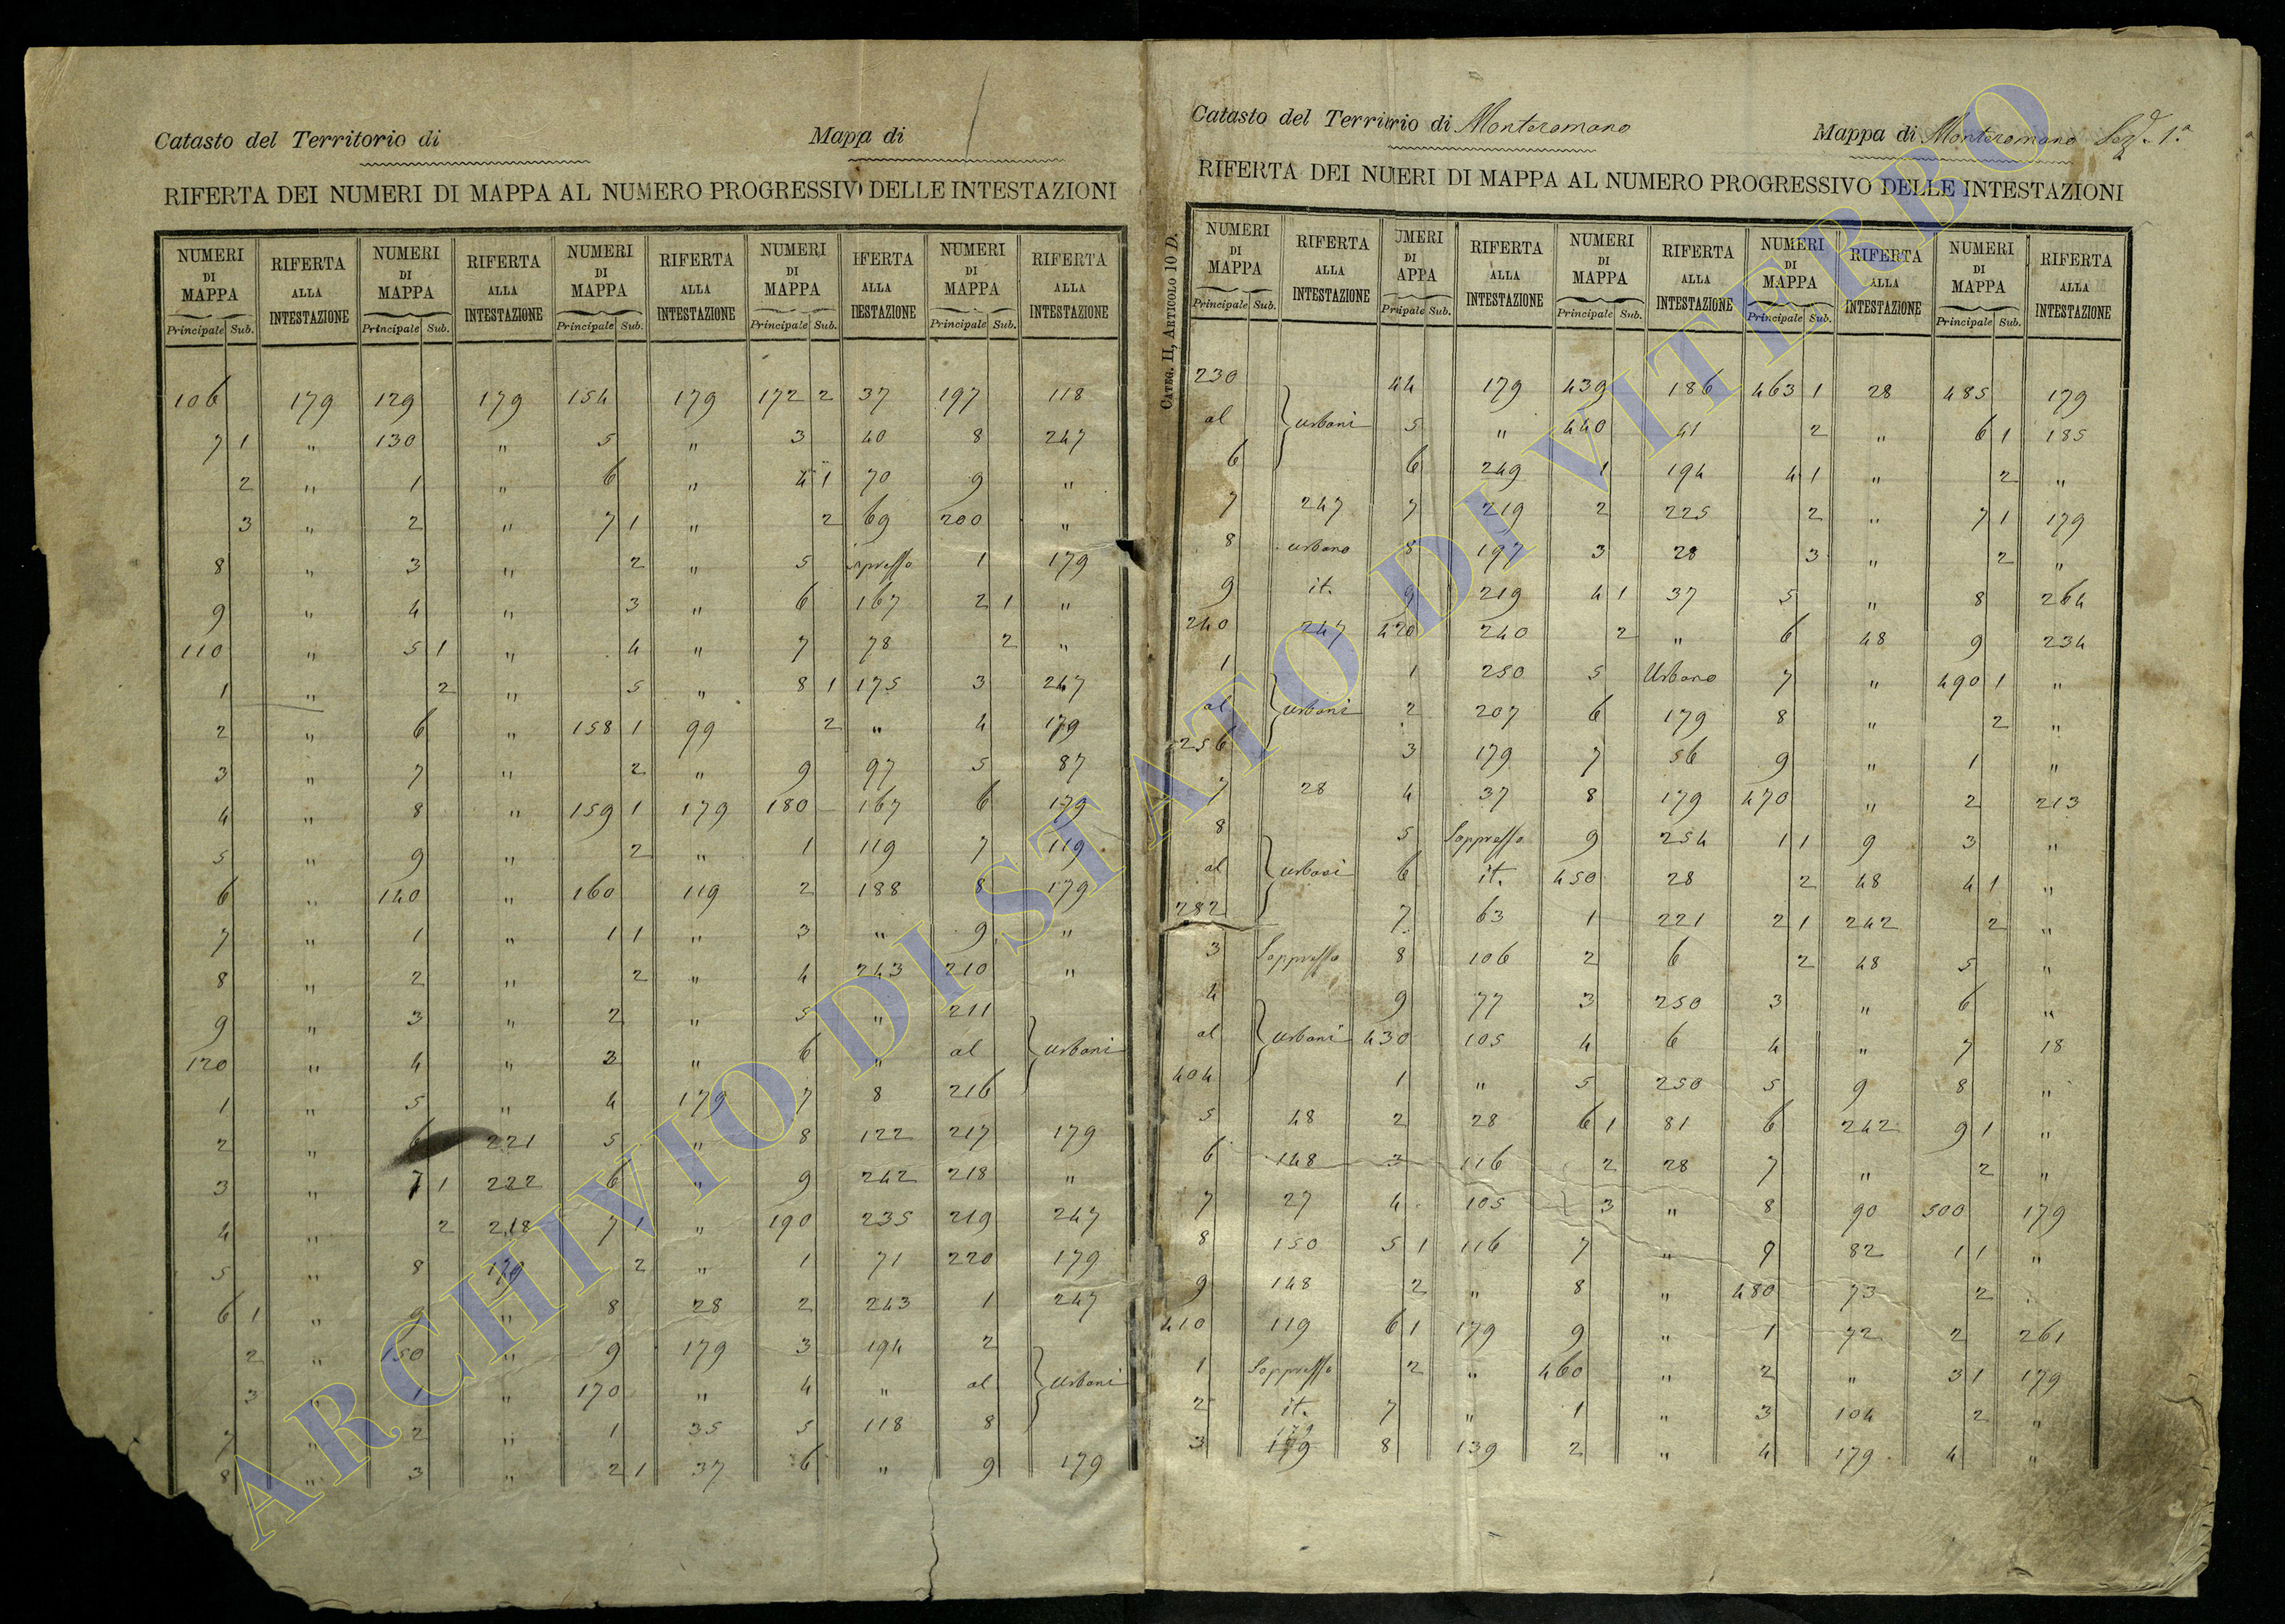 Catasto del Territorio di
Mapa di
RIFERTA DEI NUMERI DI MAPPA AL NUMERO PROGRESSIV DELLE INTESTAZIONI
NUMERI RIFERTA NUMERI RIFERTA NUMERI RIFERTA NUMERI IFERTA NUMERI RIFERTA
DI ALLA DI ALLA DI ALLA DI ALLA DI ALLA
MAPPA INTESTAZIONE MAPPA INTESTAZIONE MAPPA INTESTAZIONE MAPPA IIESTAZIONE MAPPA INTESTAZIONE
Principale Sub. Principale Sub. Principale Sub. Principale Sub. Principale Sub.
106 179 129 179 154 179 172 2 37 197 118
7 1 " 130 " 5 " 3 40 8 247
2 " 1 " 6 " 4 1 70 9 "
3 " 2 " 7 1 " 2 69 200 "
8 " 3 " 2 " 5 1 179
9 " 4 " 3 " 6 167 2 1 "
110 " 5 1 " 4 " 7 78 2 "
1 " 2 " 5 " 8 1 175 3 247
2 " 6 " 158 1 99 2 " 4 179
3 " 7 " 2 " 9 97 5 87
4 " 8 " 159 1 179 180 167 6 179
5 " 9 " 2 " 1 119 7 119
6 " 140 " 160 119 2 188 8 179
7 " 1 " 1 1 " 3 " 9 "
8 " 2 " 2 " 4 243 210 "
9 " 3 " 2 " 5 " 211
120 " 4 " 3 " 6 " al urbani
1 " 5 " 4 179 7 8 216
2 " 6 221 5 " 8 122 217 179
3 " 7 1 222 6 " 9 242 218 "
4 " 2 218 7 1 " 190 235 219 247
5 " 8 179 2 " 1 71 220 179
6 1 " 9 " 8 28 2 243 1 247
2 " 150 " 9 179 3 194 2
3 " 1 " 170 " 4 " al urbani
7 " 2 " 1 35 5 118 8
8 " 3 " 2 1 37 6 " 9 179
Catasto del Territorio di Monteromano
Mappa di Monteromano Sez. 1.ª
RIFERTA DEI NUIERI DI MAPPA AL NUMERO PROGRESSIVO DELLE INTESTAZIONI
CATEG. II, ARTICOLO 10 D.
NUMERI RIFERTA UMERI RIFERTA NUMERI RIFERTA NUMERI RIFERTA NUMERI RIFERTA
DI ALLA DI ALLA DI ALLA DI ALLA DI ALLA
MAPPA INTESTAZIONE APPA INTESTAZIONE MAPPA INTESTAZIONE MAPPA INTESTAZIONE MAPPA INTESTAZIONE
Principale Sub. Pripale Sub. Principale Sub. Principale Sub. Principale Sub.
230 44 179 439 186 463 1 28 485 179
al urbani 5 " 440 41 2 " 6 1 185
6 6 249 1 194 4 1 " 2 "
7 247 7 219 2 225 2 " 7 1 179
8 urbano 8 197 3 28 3 " 2 "
9 it. 9 219 4 1 37 5 " 8 264
240 247 420 240 2 " 6 48 9 234
1 1 250 5 Urbano 7 " 490 1 "
al urbani 2 207 6 179 8 " 2 "
256 3 179 7 56 9 " 1 "
7 28 4 37 8 179 470 " 2 213
8 5 Soppresso 9 254 1 1 9 3 "
al urbani 6 it. 450 28 2 48 4 1 "
282 7 63 1 221 2 1 242 2 "
3 Soppresso 8 106 2 6 2 48 5 "
4 9 77 3 250 3 " 6 "
al urbani 430 105 4 6 4 " 7 18
404 1 " 5 250 5 9 8 "
5 48 2 28 6 1 81 6 242 9 1 "
6 148 3 116 2 28 7 " 2 "
7 27 4 105 3 " 8 90 500 179
8 150 5 1 116 7 " 9 82 1 1 "
9 148 2 " 8 " 480 73 2
410 119 6 1 179 9 " 1 72 2 261
1 Soppresso 2 " 460 " 2 " 3 1 179
2 it. 7 " 1 " 3 104 2 "
3 179 8 139 2 " 4 179 4 "
ARCHIVIO DI STATO DI VITERBO